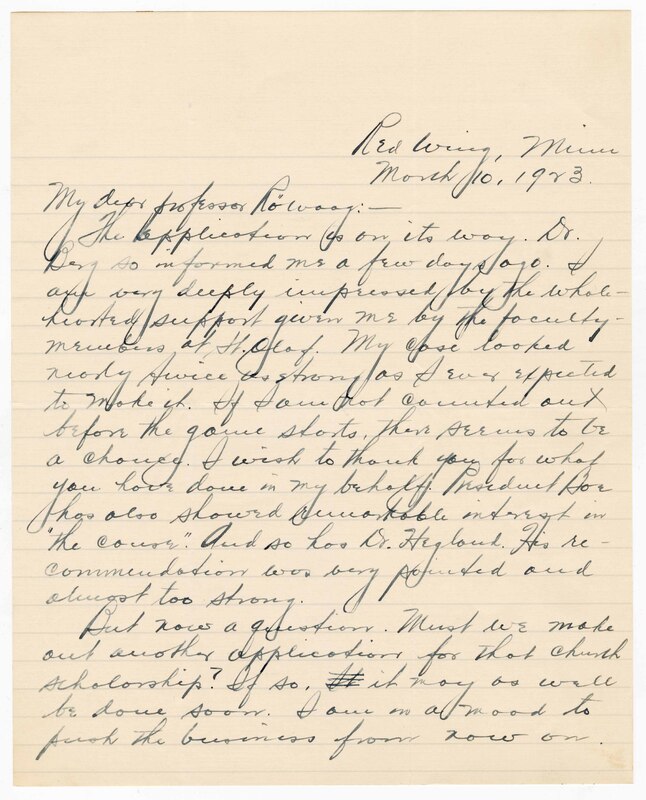 Red Wing, Minn
March 10, 1923.
My dear professor Röwaag:—
The application is on its way. Dr.
Berg so informed me a few days ago. I
am very deeply impressed by the whole-
hearted support given me by the faculty-
members at St. Olaf. My case looked
nearly twice as strong as I ever expected
to make it. If I am not counted out
before the game starts, there seems to be
a chance. I wish to thank you for what
you have done in my behalf. President Boe
has also showed remarkable interest in
"the cause". And so has Dr. Hegland. His re-
commendation was very pointed and
almost too strong.
But now a question. Must we make
out another application for that church
scholarship? If so, it may as well
be done soon. I am in a mood to
push the business from now on.